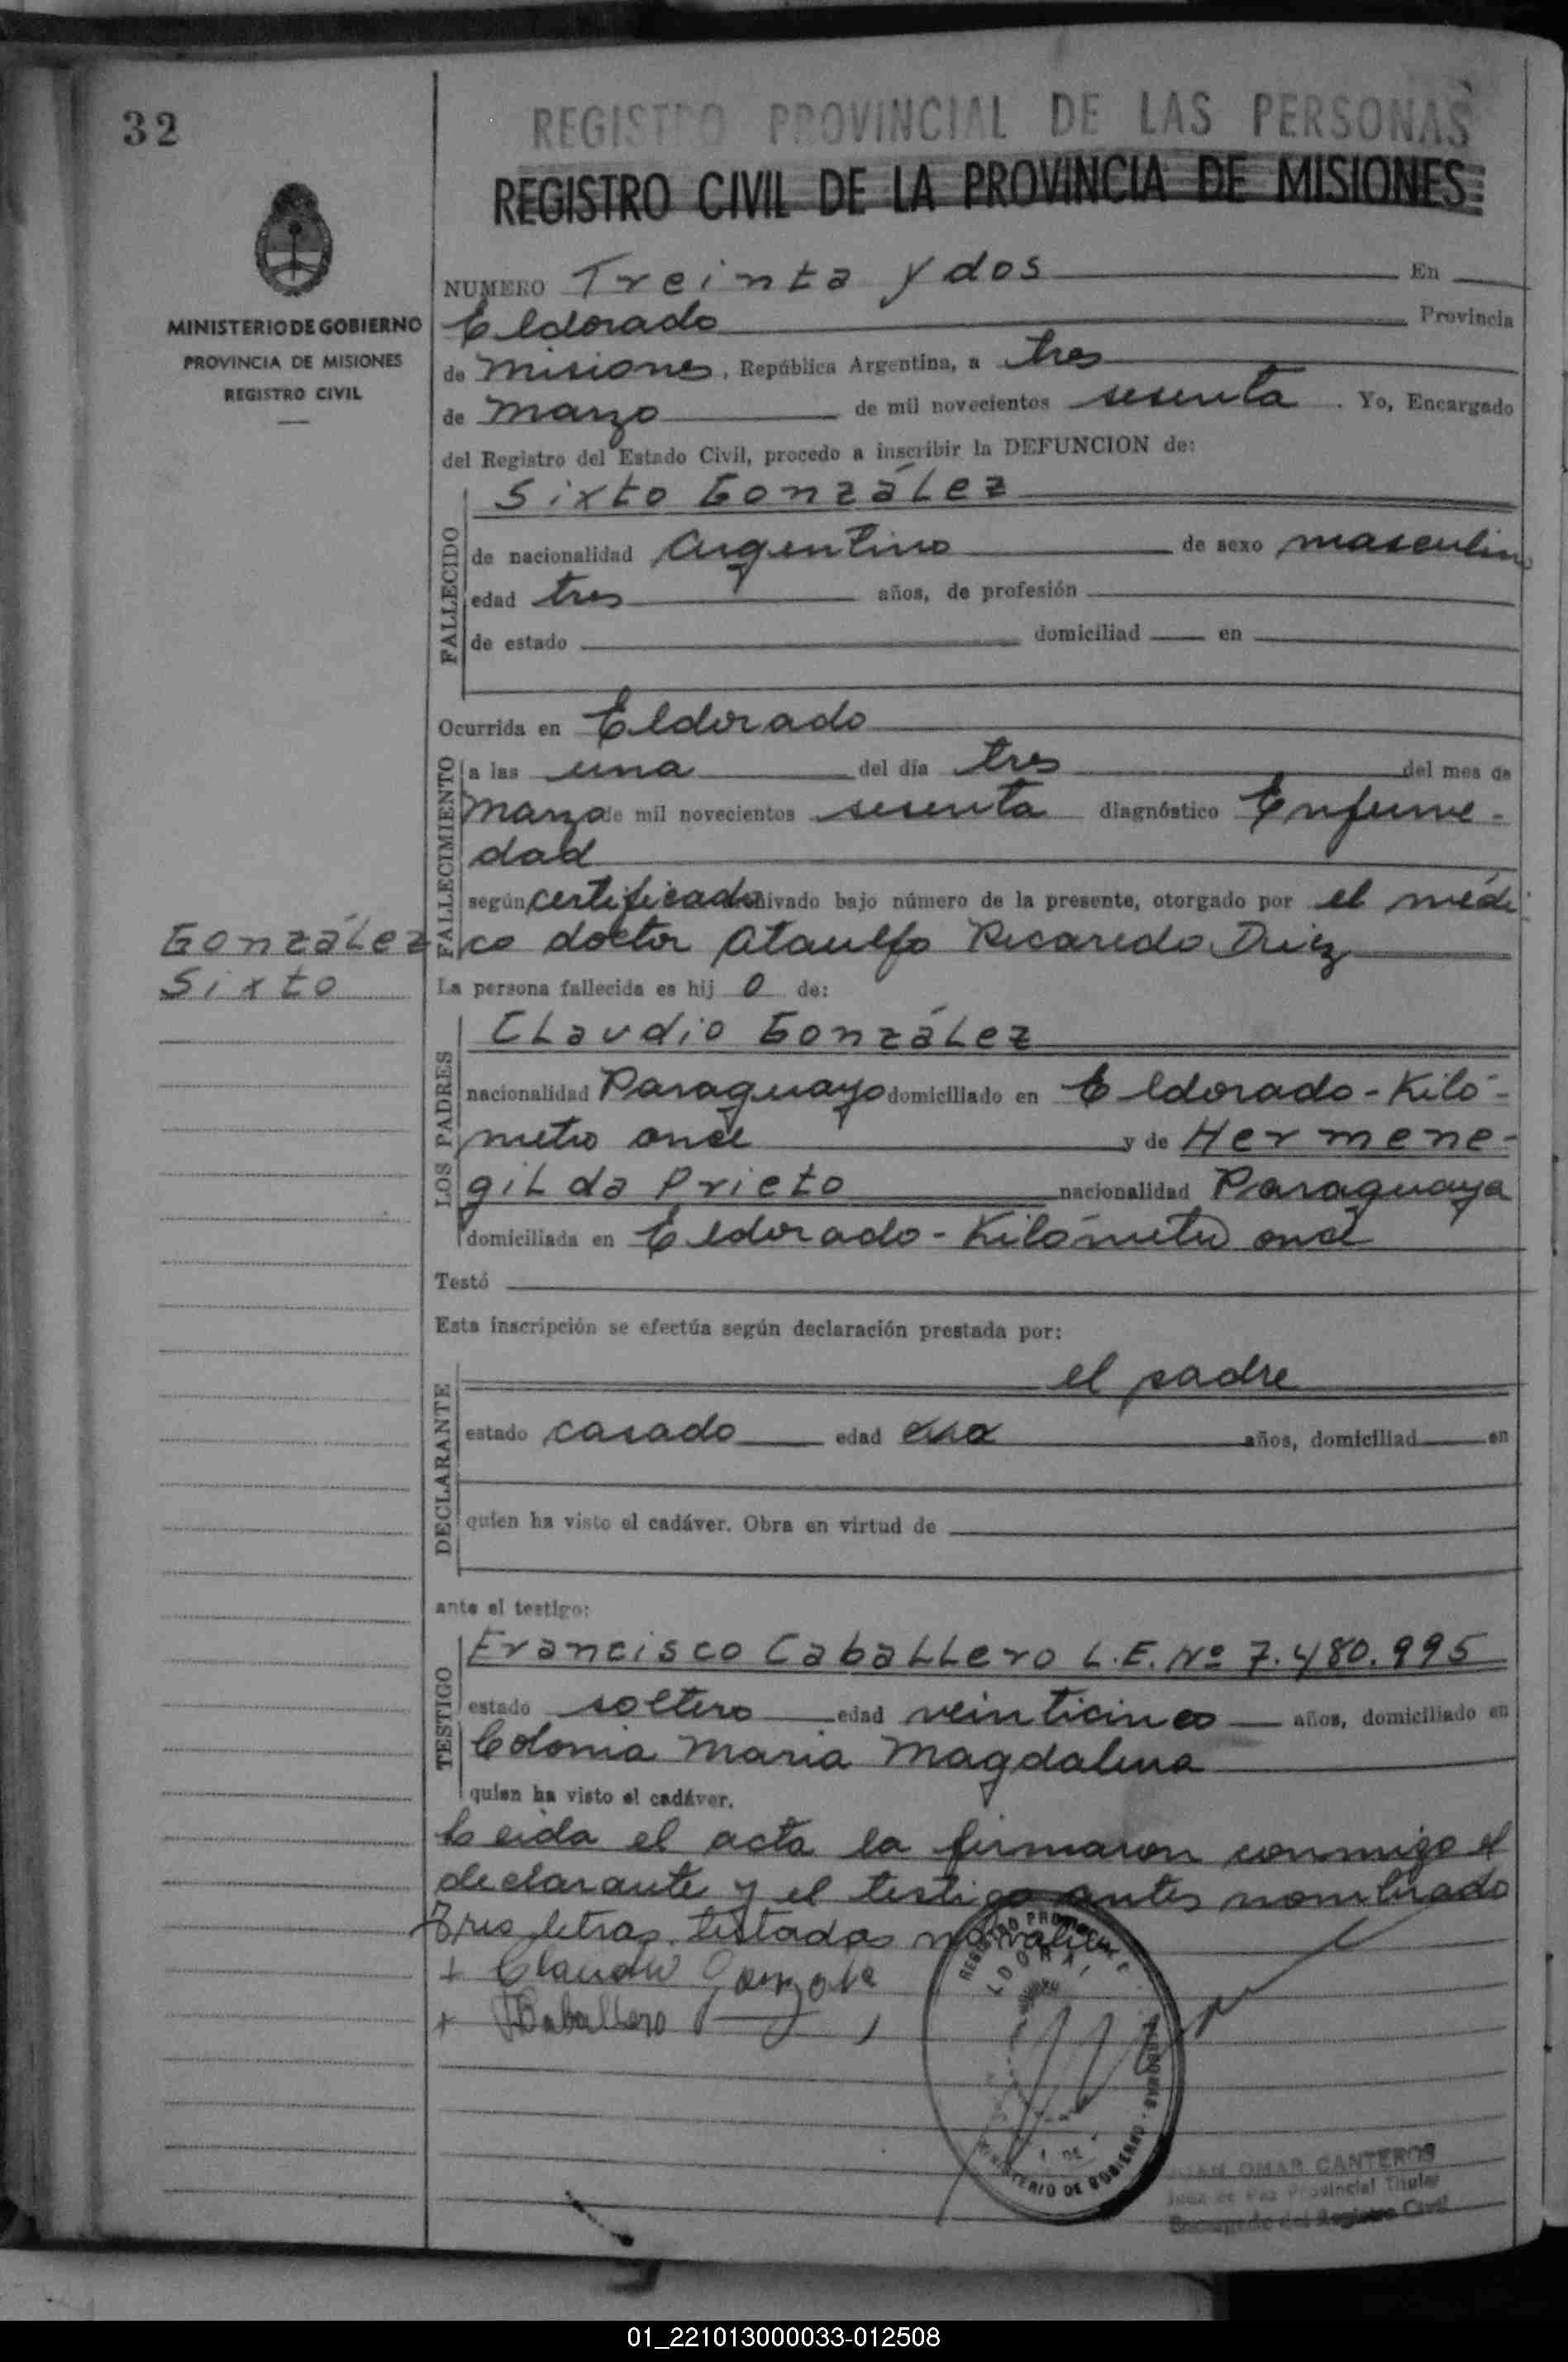 32
REGISTRO PROVINCIAL DE LAS PERSONAS
REGISTRO CIVIL DE LA PROVINCIA DE MISIONES
MINISTERIO DE GOBIERNO
PROVINCIA DE MISIONES
REGISTRO CIVIL
NUMERO Treinta y dos En
Eldorado Provincia
de Misiones, República Argentina, a tres
de Marzo de mil novecientos sesenta. Yo, Encargado
del Registro del Estado Civil, procedo a inscribir la DEFUNCION de:
FALLECIDO
Sixto González
de nacionalidad Argentino de sexo masculino
edad tres años, de profesión
de estado domiciliad en
Ocurrida en Eldorado
FALLECIMIENTO
a las una del día tres del mes de
Marzo de mil novecientos sesenta diagnóstico Enferme-
dad
según certificado archivado bajo número de la presente, otorgado por el médi
co doctor Ataulfo Ricaredo Diez
González
Sixto
La persona fallecida es hij o de:
LOS PADRES
Claudio González
nacionalidad Paraguayo domiciliado en Eldorado-Kiló-
metro once y de Hermene-
gilda Prieto nacionalidad Paraguaya
domiciliada en Eldorado-Kilómetro once
Testó
Esta inscripción se efectúa según declaración prestada por:
DECLARANTE
el padre
estado casado edad años, domiciliad en
quien ha visto el cadáver. Obra en virtud de
ante el testigo:
TESTIGO
Francisco Caballero L.E. Nº 7.480.995
estado soltero edad veinticinco años, domiciliado en
Colonia Maria Magdalena
quien ha visto el cadáver.
Leida el acta la firmaron conmigo el
declarante y el testigo antes nombrado
Tres letras testadas no valen
+ Claudio Gonzale
+ F Caballero
MINISTERIO DE GOBIERNO
JUAN OMAR CANTEROS
Juez de Paz Provincial Titular
Encargado del Registro Civil
01_221013000033-012508